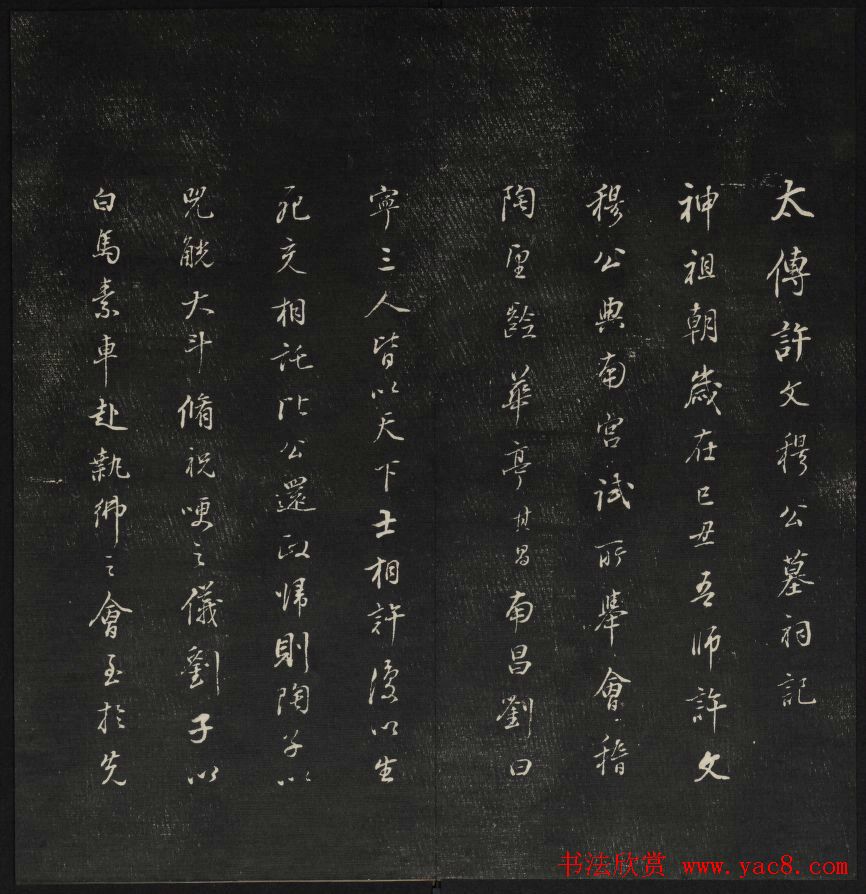 太傅許文穆公墓祠記
神祖朝歲在己丑吾師許文
穆公典南宮試所舉會稽
陶望齡華亭其昌南昌劉曰
寧三人皆以天下士相許復以生
死交相託階公還政歸則陶子以
兕觥大斗脩祝哽之儀劉子以
白馬素車赴執紼之會至於先
书法欣赏 www.yac8.com